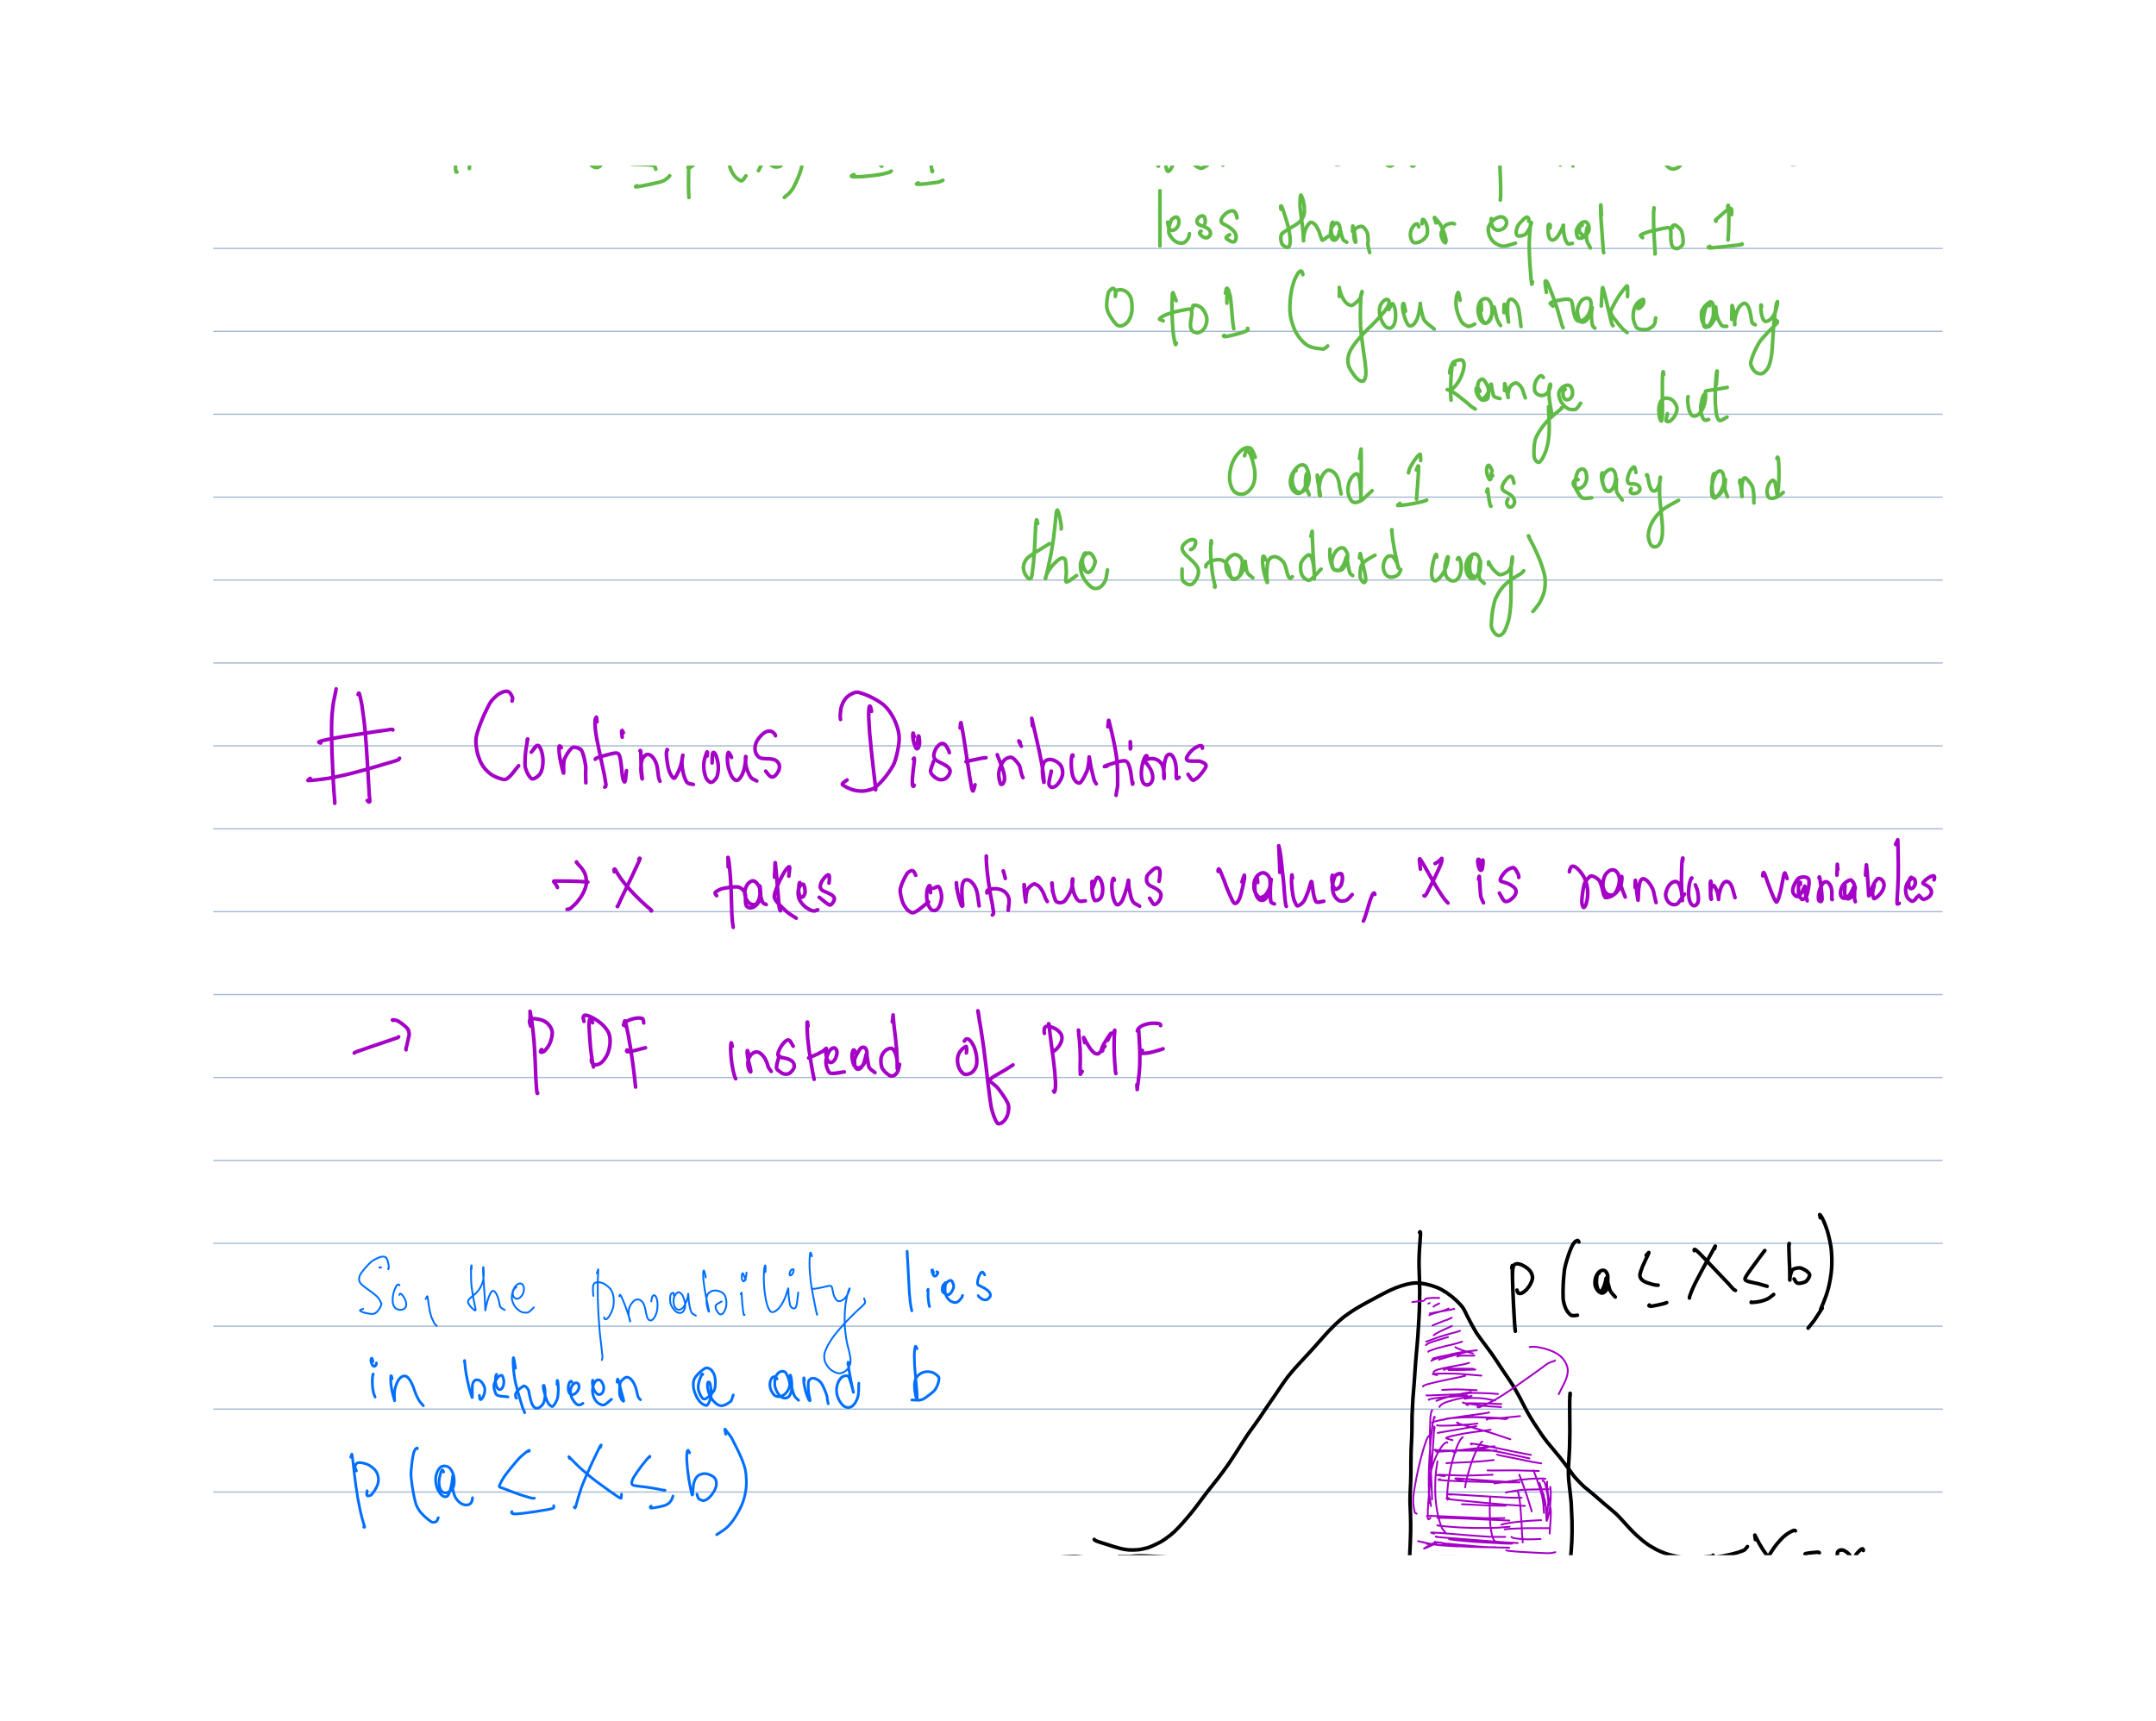 less than or equal to 1
0 to 1 ( you can take any
Range but
0 and 1 is easy and
the standard way)
# Continous Distributions
→ X takes continuous value, X is random variables
→ PDF instead of PMF
So, the Probability lies
in between a and b
P(a ≤ X ≤ b)
P(a ≤ X ≤ b)